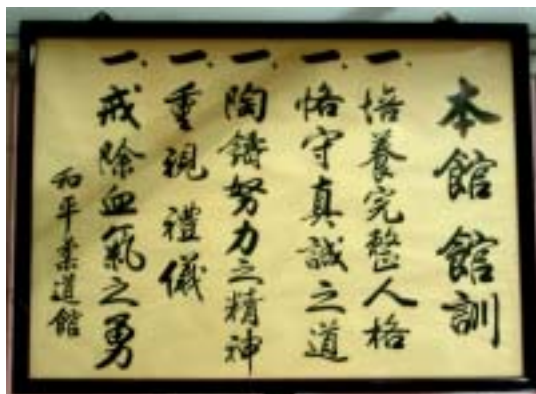 本館館訓
一、培養完整人格
一、恪守真誠之道
一、陶鑄努力之精神
一、重視禮儀
一、戒除血氣之勇
和平柔道館